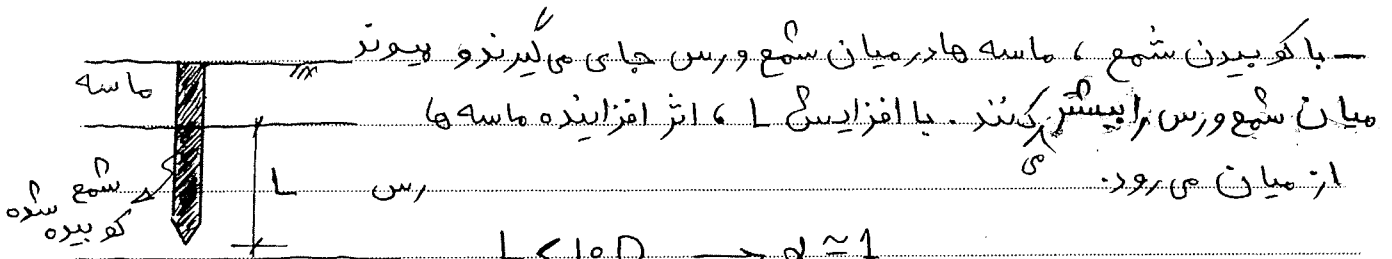 - با کوبیدن شمع ، ماسه ها در میان شمع و رس جای می گیرند و پیوند
میان شمع و رس را بیشتر می کنند . با افزایش L ، اثر افزاینده ماسه ها
از میان می رود.
ماسه
رس
L
شمع
کوبیده شده
L < 10D → α ≃ 1